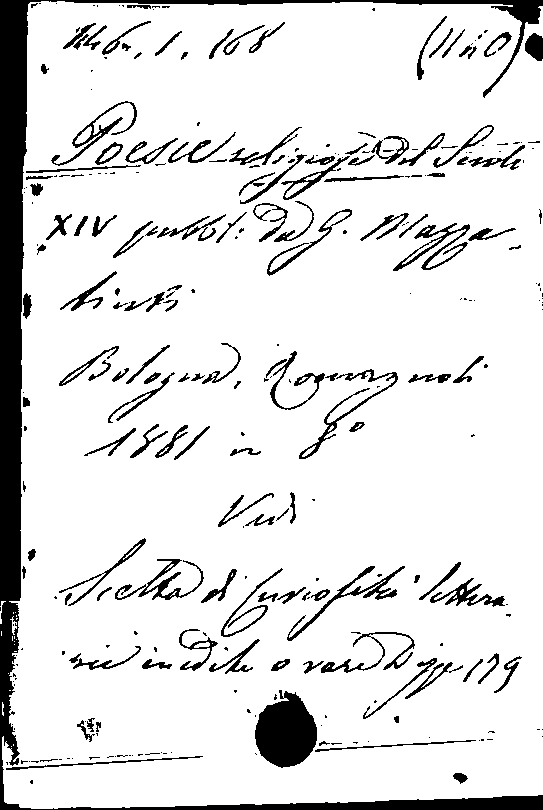 1, 168 (1140)
Poesie religiose del Secolo
XIV pubbl: da G. Mazza-
tinti
Bologna, Romagnoli
1881 in 8°
Vedi
Scelta di Curiosità lettera
rie inedite o rare Disp 179